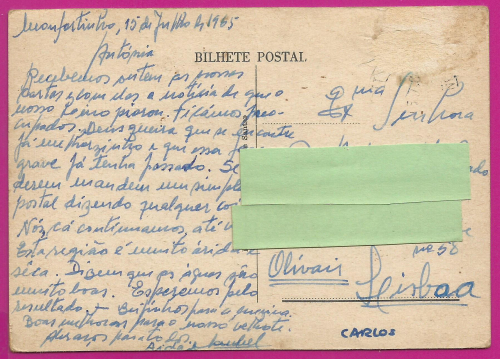 Monfortinho, 15 de Julho de 1965
Antónia
BILHETE POSTAL
Recebemos ontem as vossas
cartas e com elas a notícia de que o
nosso piorou. Ficámos preo-
cupados. Deus queira que se encontre
já melhorzinho e que essa fase
grave já tenha passado. Se
derem mandem um simples
postal dizendo qualquer
Nós, cá continuamos, até
Esta região é muito árida e
sêca. Dizem que as águas são
muito boas. Esperemos pelo
resultado. Beijinhos para a menina.
Boas melhoras para o nosso velhote.
Abraços para todos.
Exma Senhora
nº 58
Olivais
Lisboa
CARLOS